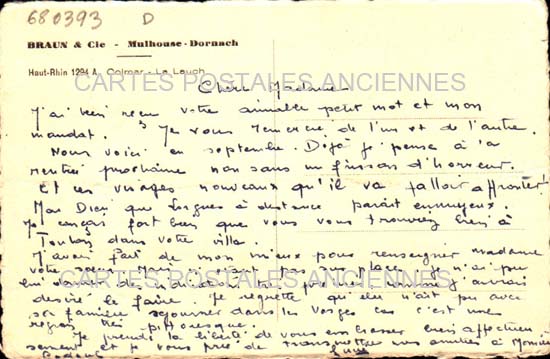 680393 D
BRAUN & Cie - Mulhouse-Dornach
Haut-Rhin 1294 A. Colmar - La Lauch
CARTES POSTALES ANCIENNES
Chère Madame
J'ai bien reçu votre aimable petit mot et mon
mandat. Je vous remercie de l'un et de l'autre.
Nous voici en septembre. Déjà je pense à la
rentrée prochaine non sans un frisson d'horreur.
Et ces visages nouveaux qu'il va falloir affronter!
Mon Dieu que Vosges à distance paraît ennuyeux.
Je conçois fort bien que vous vous trouviez bien à
Toulon dans votre villa.
J'avais fait de mon mieux pour renseigner madame
votre
CARTES POSTALES ANCIENNES
lui donner
désiré le faire. Je regrette qu'elle n'ait pu avec
sa famille séjourner dans les Vosges car c'est une
région très pittoresque.
Je prends la liberté de vous embrasser bien affectueu
sement et je vous prie de transmettre mes amitiés à Monsieur